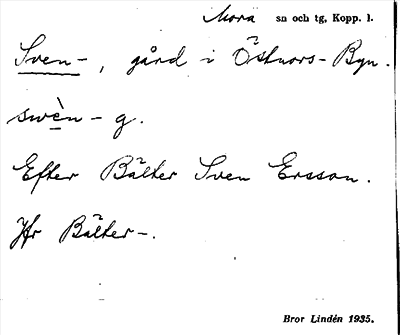 Mora sn och tg, Kopp. l.
Sven-, gård i Östnors-Byn.
swèn - g.
Efter Bälter Sven Ersson.
Jfr Bälter-.
Bror Lindén 1935.